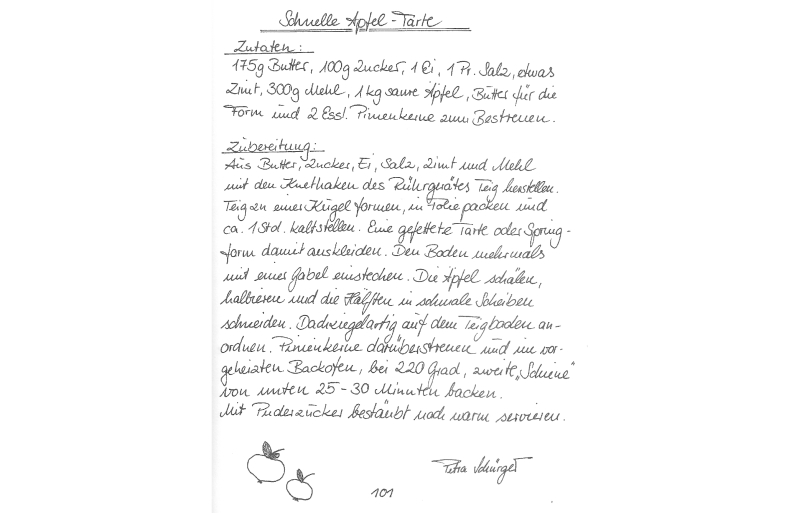 Schnelle Apfel-Tarte
Zutaten:
175g Butter, 100g Zucker, 1 Ei, 1 Pr. Salz, etwas
Zimt, 300g Mehl, 1 kg saure Äpfel, Butter für die
Form und 2 Essl. Pinienkerne zum Bestreuen.
Zubereitung:
Aus Butter, Zucker, Ei, Salz, Zimt und Mehl
mit den Knethaken des Rührgerätes Teig herstellen.
Teig zu einer Kugel formen, in Folie packen und
ca. 1 Std. kaltstellen. Eine gefettete Tarte oder Spring-
form damit auskleiden. Den Boden mehrmals
mit einer Gabel einstechen. Die Äpfel schälen,
halbieren und die Hälften in schmale Scheiben
schneiden. Dachziegelartig auf dem Teigboden an-
ordnen. Pinienkerne darüberstreuen und im vor-
geheizten Backofen, bei 220 Grad, zweite „Schiene"
von unten 25-30 Minuten backen.
Mit Puderzucker bestäubt noch warm servieren.
Petra
101